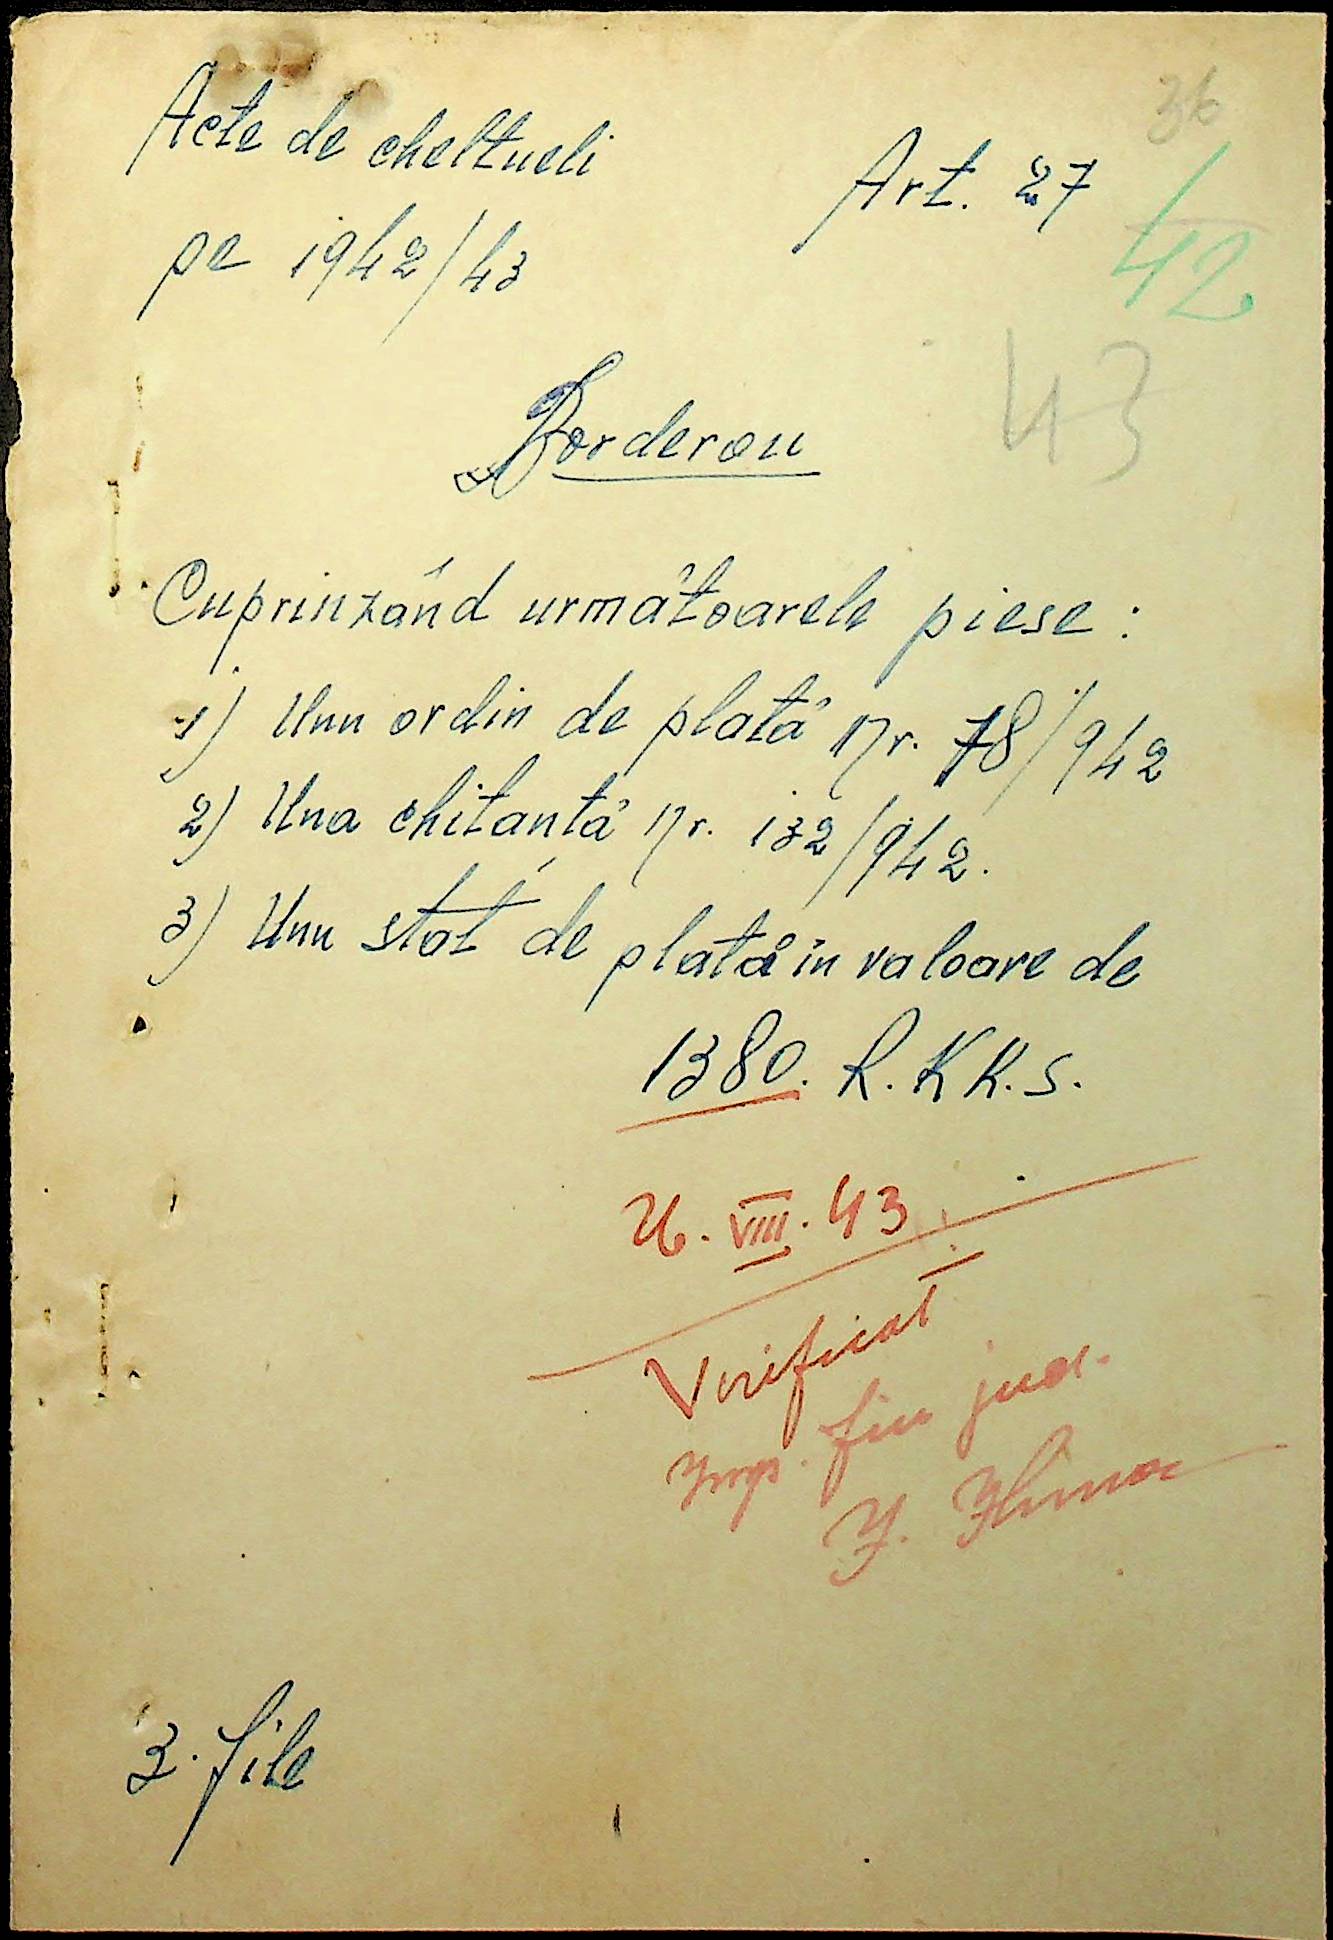 36
Acte de cheltueli
Art. 27
pe 1942/43
42
43
Borderou
Cuprinzând următoarele piese:
1) Unu ordin de plată Nr. 78/942
2) Una chitanță Nr. 132/942.
3) Unu stat de plată în valoare de
1380. R.K.K.S.
26. VIII. 43
Verificat
Insp. fin jud.
3. file